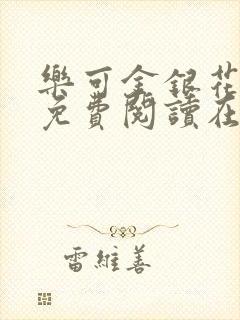 樂可金銀花
免費閱讀在
雷維善